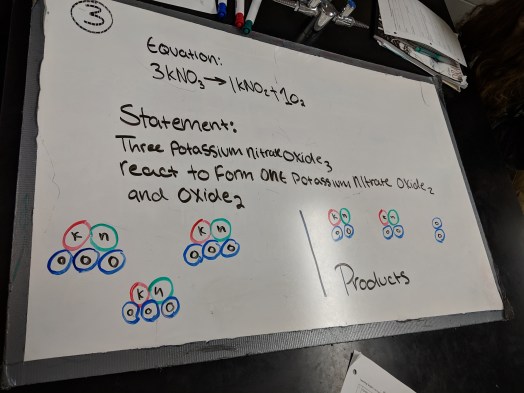 3
Equation:
3KNO₃→1KNO₂+1O₂
Statement:
Three Potassium nitrate oxide₃
react to Form one potassium nitrate oxide₂
and oxide₂
K n
O O O
K n
O O O
K n
O O O
K n
O O
K n
O O
O
O
Products